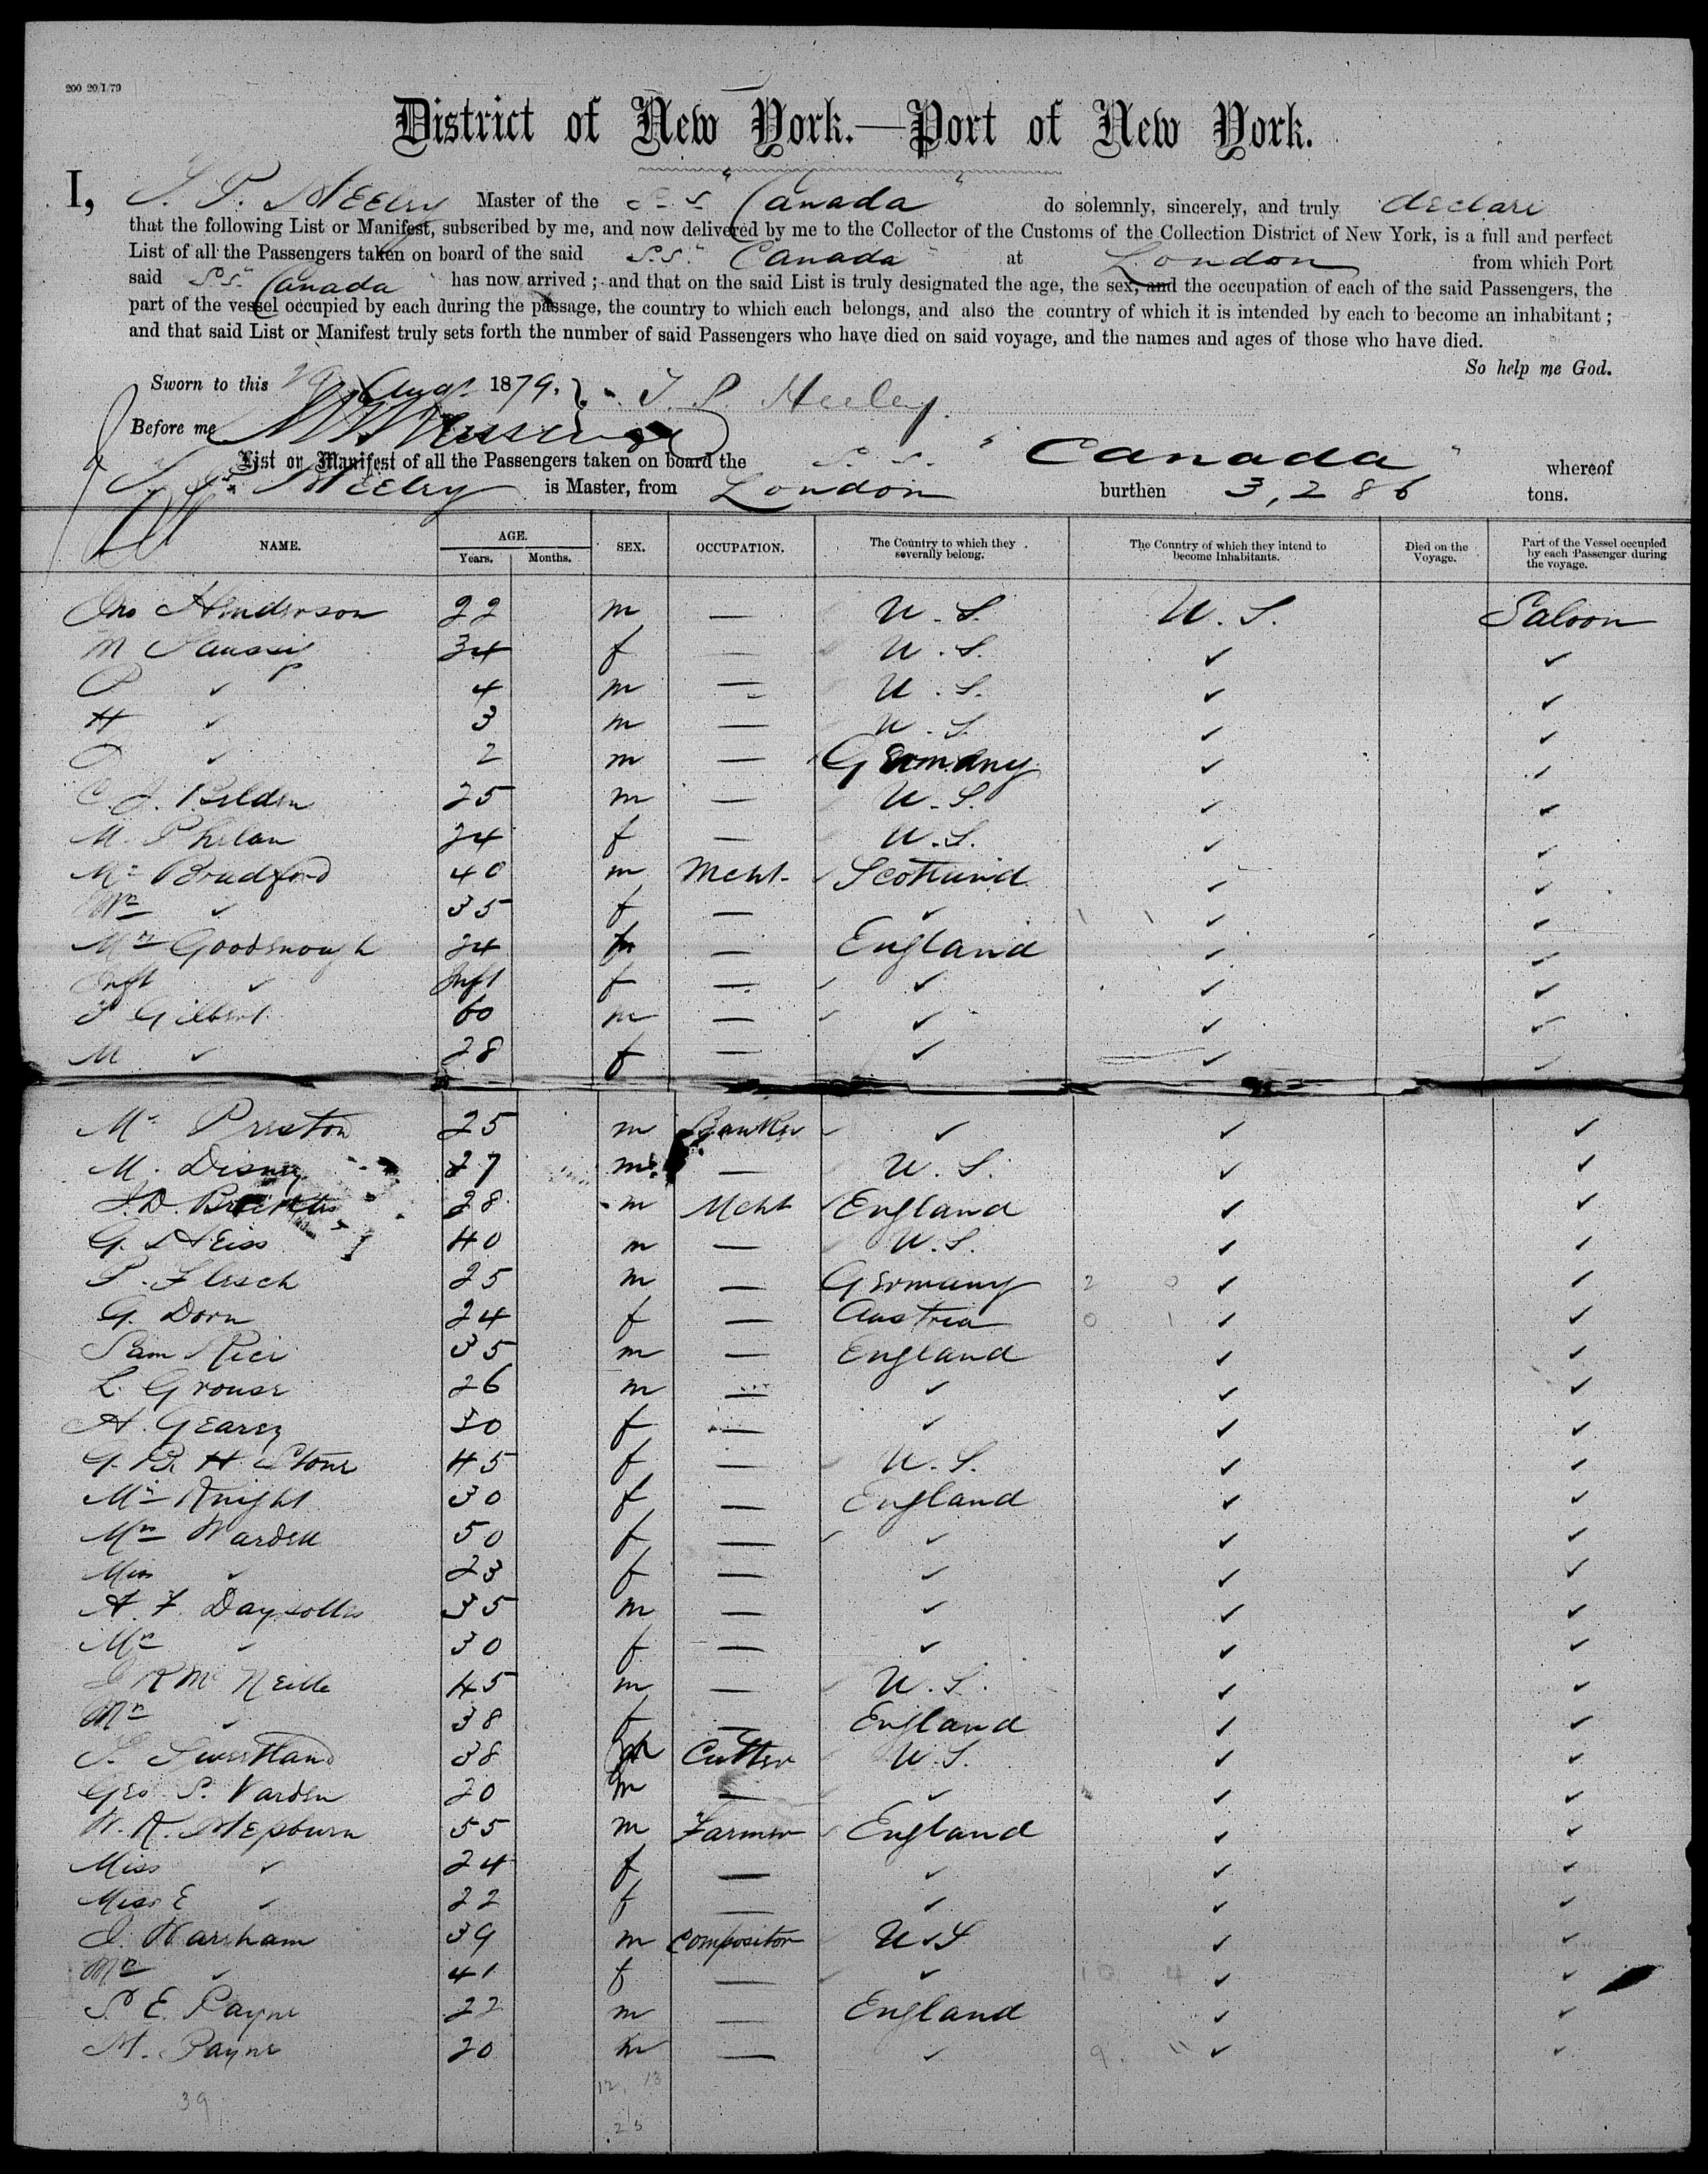 200 20/1/79
District of New York.—Port of New York.
I, Master of the S.S. "Canada" do solemnly, sincerely, and truly declare
that the following List or Manifest, subscribed by me, and now delivered by me to the Collector of the Customs of the Collection District of New York, is a full and perfect
List of all the Passengers taken on board of the said S.S. "Canada" at London from which Port
said S.S. "Canada" has now arrived; and that on the said List is truly designated the age, the sex, and the occupation of each of the said Passengers, the
part of the vessel occupied by each during the passage, the country to which each belongs, and also the country of which it is intended by each to become an inhabitant;
and that said List or Manifest truly sets forth the number of said Passengers who have died on said voyage, and the names and ages of those who have died.
So help me God.
Sworn to this 29 Augt. 1879. Heeley.
Before me
List or Manifest of all the Passengers taken on board the S.S. "Canada" whereof
Heeley is Master, from London burthen 3,286 tons.
NAME. AGE. Years. Months. SEX. OCCUPATION. The Country to which they severally belong. The Country of which they intend to become Inhabitants. Died on the Voyage. Part of the Vessel occupied by each Passenger during the voyage.
Jno Henderson 22 m — U.S. U.S. Saloon
M 34 f — U.S. ✓ ✓
P ✓ 4 m — U.S. ✓ ✓
H ✓ 3 m — U.S. ✓ ✓
✓ 2 m — Germany ✓ ✓
C. J. Belden 25 m — U.S. ✓ ✓
M. Phelan 24 f — U.S. ✓ ✓
Mr Bradford 40 m Mcht. Scotland ✓ ✓
Mrs ✓ 35 f — ✓ ✓ ✓
Mrs Goodenough 24 — England ✓ ✓
Inft ✓ Inft f — ✓ ✓ ✓
Gilbert 60 m — ✓ ✓ ✓
M ✓ 28 f — ✓ ✓ ✓
Mr Preston 25 m Banker ✓ ✓ ✓
M. Disney 27 m — U.S. ✓ ✓
28 m Mcht England ✓ ✓
G. Heiss 40 m — U.S. ✓ ✓
P. Flesch 25 m — Germany ✓ ✓
G. Dorn 24 f — Austria ✓ ✓
Sam Rice 35 m — England ✓ ✓
L. Grouse 26 m — ✓ ✓ ✓
A. Gearey 30 f — ✓ ✓ ✓
G. B. H. Stone 45 f — U.S. ✓ ✓
Knight 30 f — England ✓ ✓
Mrs Wardell 50 f — ✓ ✓ ✓
Miss ✓ 23 f — ✓ ✓ ✓
A. F. 35 m — ✓ ✓ ✓
Mrs ✓ 30 f — ✓ ✓ ✓
R Mc Neille 45 m — U.S. ✓ ✓
Mrs ✓ 38 f — England ✓ ✓
S. Sweetland 38 m Cutter U.S. ✓ ✓
Geo. S. Varden 20 m — ✓ ✓ ✓
W. R. Hepburn 55 m Farmer England ✓ ✓
Miss ✓ 24 f — ✓ ✓ ✓
Miss E ✓ 22 f — ✓ ✓ ✓
J. Warsham 39 m Compositor U.S ✓ ✓
Mrs ✓ 41 f — ✓ 10 4 ✓ ✓
S. E. Payne 22 m — England ✓ ✓
M. Payne 20 m — ✓ 9. 11 ✓ ✓
39 12, 13
25